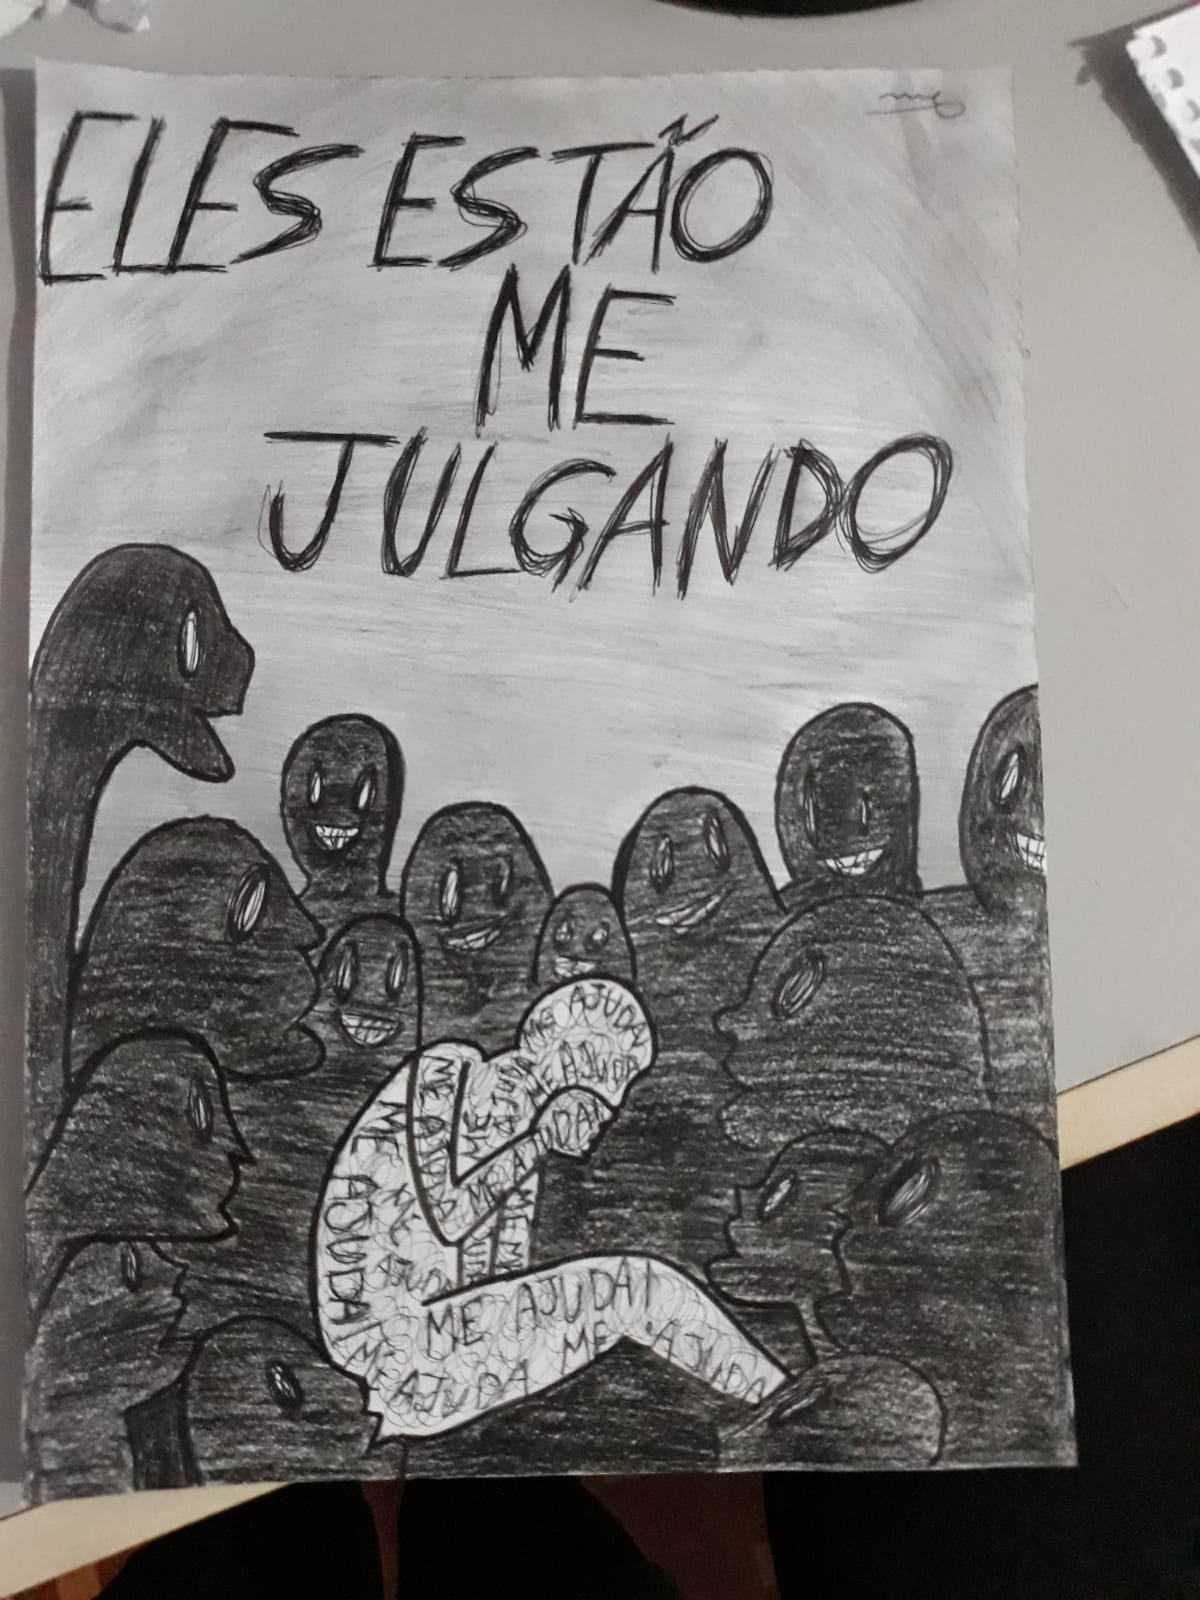 ELES ESTÃO
ME
JULGANDO
ME AJUDA!
ME AJUDA
ME AJUDA
ME AJUDA!
ME
AJUDA
ME AJUDA!
ME AJUDA
ME AJUDA